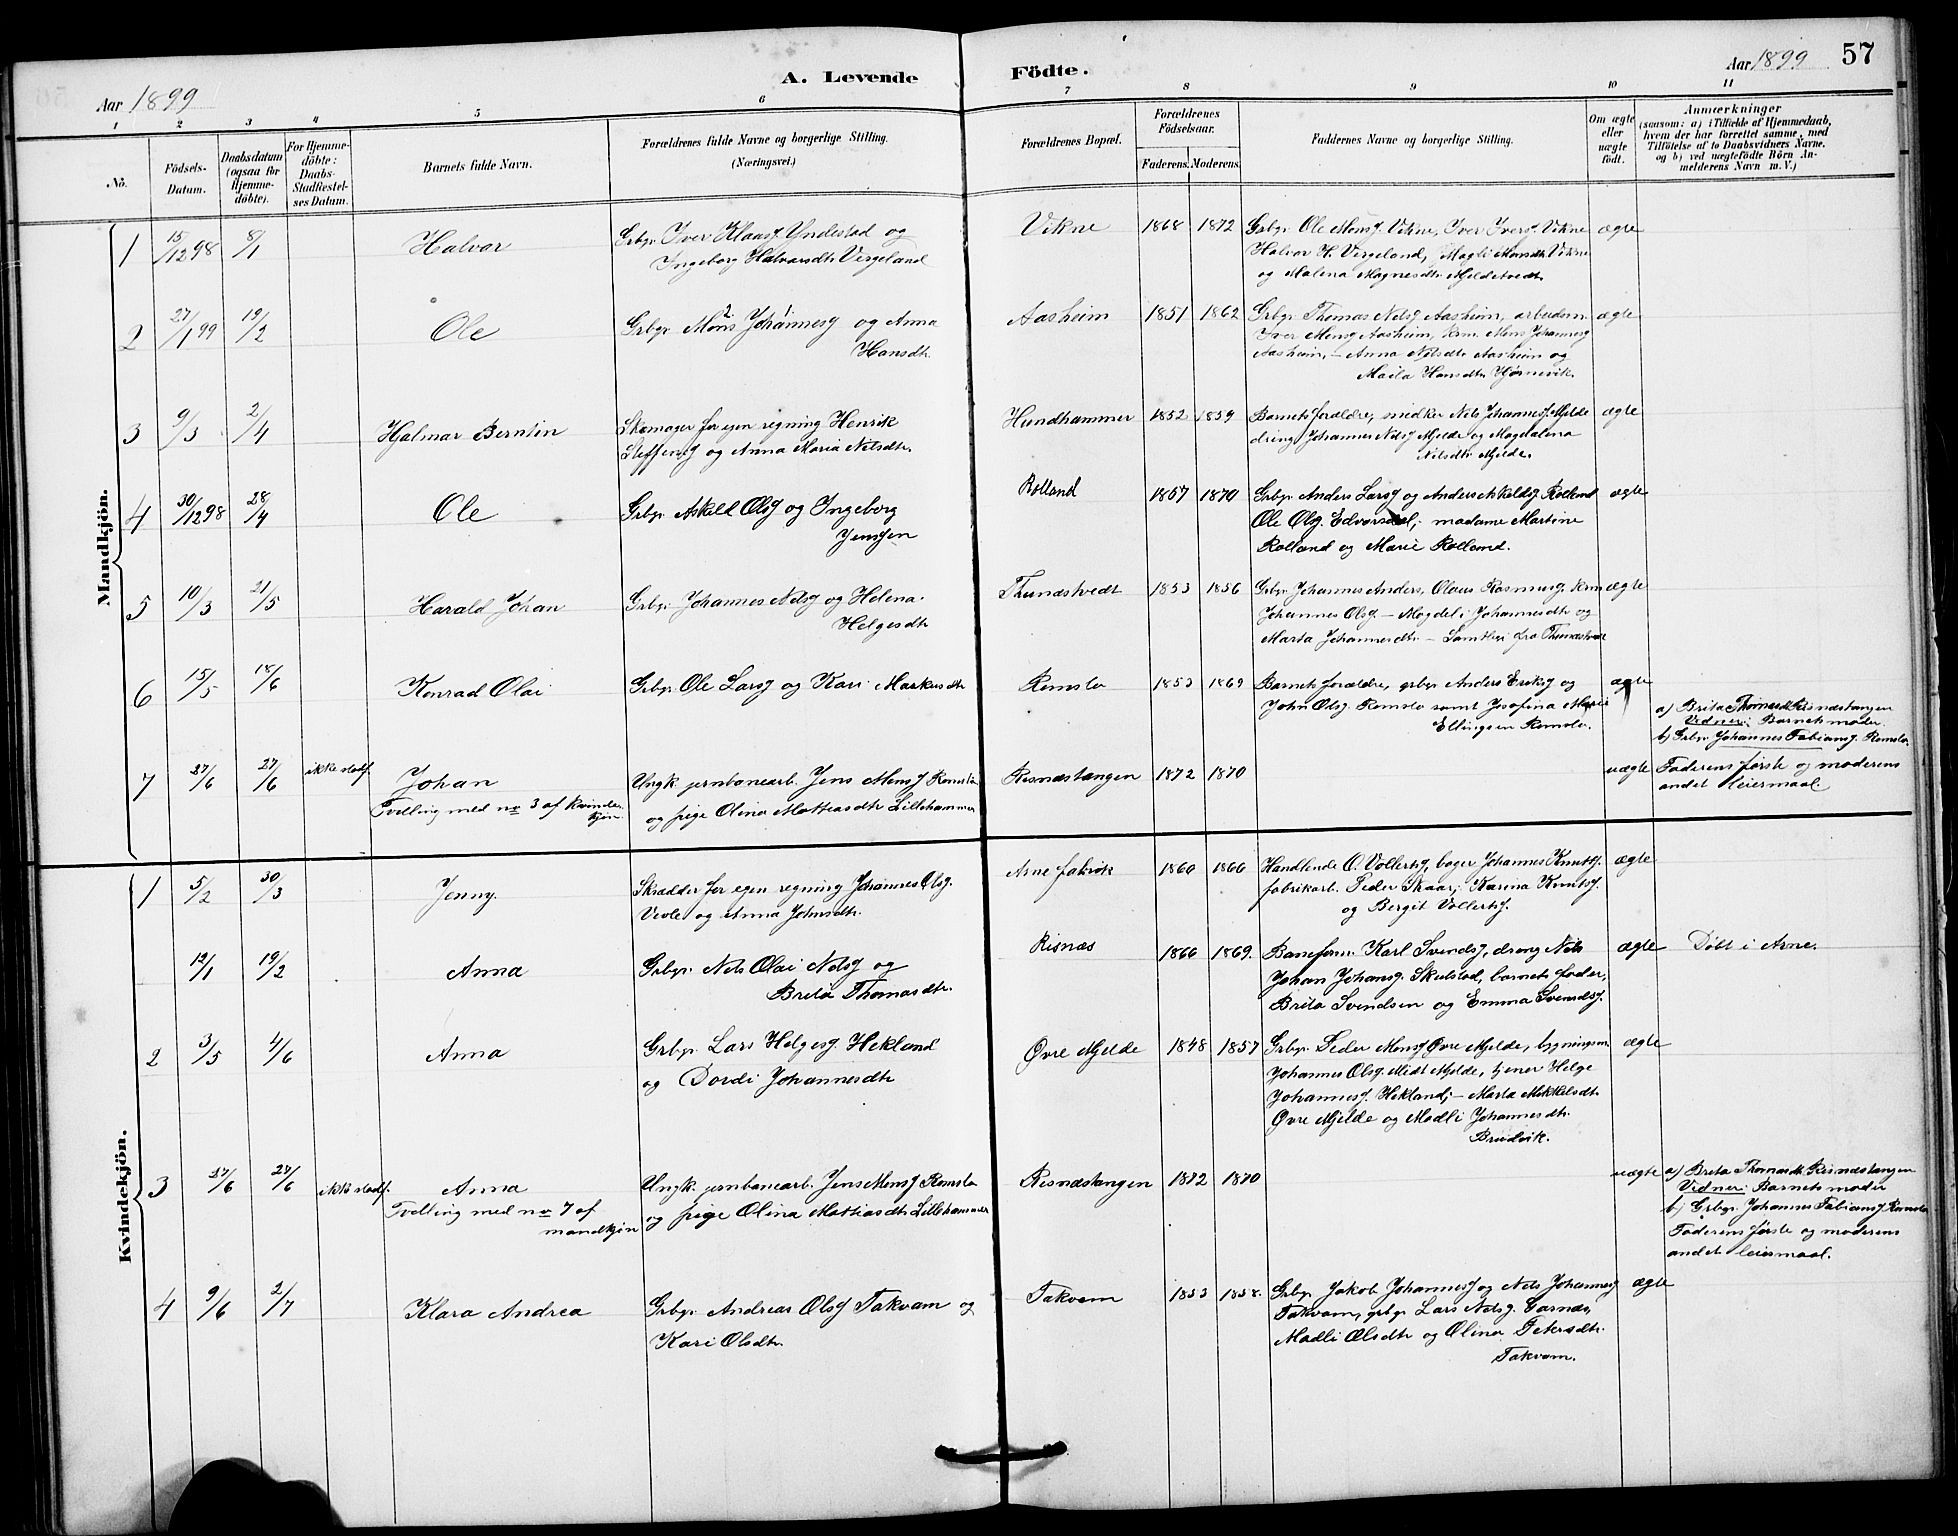 A. Levende Födte.
57
Aar 1899
Aar 1899
1 2 3 4 5 6 7 8 9 10 11
No.
Födsels-Datum.
Daabsdatum (ogsaa for Hjemmedöbte).
For Hjemmedöbte: Daabs-Stadfæstelses Datum.
Barnets fulde Navn.
Forældrenes fulde Navne og borgerlige Stilling. (Næringsvei.)
Forældrenes Bopæl.
Forældrenes Födselsaar.
Faderens. Moderens.
Faddernes Navne og borgerlige Stilling.
Om ægte eller uægte födt.
Anmærkninger
(saasom: a) i Tilfælde af Hjemmedaab,
hvem der har forrettet samme, med
Tilföielse af to Daabsvidners Navne,
og b) ved uægtefödte Börn An-
melderens Navn m. V.)
Mandkjön.
1 15/12 98 8/1 Halvor
Grbgr. Iver Klaasj. Yndestad og
Ingeborg Halvorsdtr. Vergeland
Vikne 1868 1872
Grbgr. Ole Monsj. Vikne, Iver Iversj. Vikne
Halvor H. Vergeland, Magli Monsdtr. Vikne
og Malena Magnesdtr. Mjeldetvedt.
ægte
2 27/1 99 19/2 Ole
Grbgr. Mons Johannesj og Anna
Hansdtr.
Aasheim 1851 1862
Grbgr. Thomas Nelsj Aasheim, arbeidsm.
Iver Monsj Aasheim, krm. Mons Johannesj
Aasheim, – Anna Nelsdtr. Aasheim og
Maila Hansdtr. Hjørnevik.
ægte
3 9/3 2/4 Hjalmar Berntin
Skomager for egen regning Henrik
Steffensj og Anna Maria Nelsdtr.
Hundhammer 1852 1859
Barnets forældre, snedker Nels Johannesj. Mjelde
dreng Johannes Nelsj Mjelde og Magdalena
Nelsdtr. Mjelde.
ægte
4 30/12 98 28/4 Ole
Grbgr. Askeld Olsj og Ingeborg
Jensjen
Rolland 1857 1870
Grbgr. Anders Larsj og Anders Askeldsj. Rolland
Ole Olsj. Edvardsdal; madame Martine
Rolland og Marie Rolland.
ægte
5 10/3 21/5 Harald Johan
Grbgr. Johannes Nelsj og Helena
Helgesdtr
Thunæstvedt 1853 1856
Grbgr. Johannes Anders, Olaus Rasmusj. krm
Johannes Olsj. – Magdeli Johannesdtr og
Marta Johannesdtr. – Samtlige fra Thunæstvedt
ægte
6 15/5 18/6 Konrad Olai
Grbgr. Ole Larsj og Kari Markusdtr
Romslo 1853 1869
Barnets forældre, grbgr. Anders Eriksj og
John Olsj. Romslo samt Josefina Marie
Ellingsen Romslo.
ægte
7 27/6 27/6 ikke stadf. Johan
Tvelling med no 3 af kvinde-
kjøn.
Ungk. jernbanearb. Jens Monsj Romslo
og pige Olina Mattiasdtr Lillehammer
Risnæstangen 1872 1870
uægte
a) Brita Thomasdtr Risnæstangen
Vidner: Barnets moder.
b) Grbgr. Johannes Fabiansj. Romslo.
Faderens første og moderens
andet leiermaal.
Kvindekjön.
1 5/2 30/3 Jenny.
Skrædder for egen regning Johannes Olsj.
Vevle og Anna Johnsdtr.
Arne fabrik 1860 1866
Handlende O. Vollertsj, bager Johannes Knutsj.
fabrikarb. Peder Skaar; Karina Knutsj.
og Bergit Vollertsj.
ægte
12/1 19/2 Anna
Grbgr. Nels Olai Nelsj og
Brita Thomasdtr.
Risnæs 1866 1869.
Baneform. Karl Svendsj, dreng Nels
Johan Johansj. Skulstad, barnets fader,
Brita Svendsen og Emma Svendsj.
ægte
Døbt i Arne.
2 3/5 4/6 Anna
Grbgr. Lars Helgesj. Hekland
og Dordi Johannesdtr
Øvre Mjelde 1848 1857
Grbgr. Peder Monsj Øvre Mjelde, bygningsm.
Johannes Olsj. Midt Mjelde, tjener Helge
Johannesj. Hekland; – Marta Mikkelsdtr.
Øvre Mjelde og Madli Johannesdtr.
Bruvik.
ægte
3 27/6 27/6 ikke stadf. Anna
Tvelling med no 7 af
mandkjøn
Ungk. jernbanearb. Jens Monsj Romslo
og pige Olina Mattiasdtr. Lillehammer
Risnæstangen 1872 1870
uægte
a) Brita Thomasdtr. Risnæstangen
Vidner: Barnets moder
b) Grbgr. Johannes Fabiansj Romslo
Faderens første og moderens
andet leiermaal.
4 9/6 2/7 Klara Andrea
Grbgr. Andreas Olsj Takvam og
Kari Olsdtr.
Takvam 1853 1858.
Grbgr. Jakob Johannesj og Nels Johannesj
Takvam, grbgr. Lars Nelsj. Garnæs,
Madli Olsdtr og Olina Petersdtr.
Takvam.
ægte